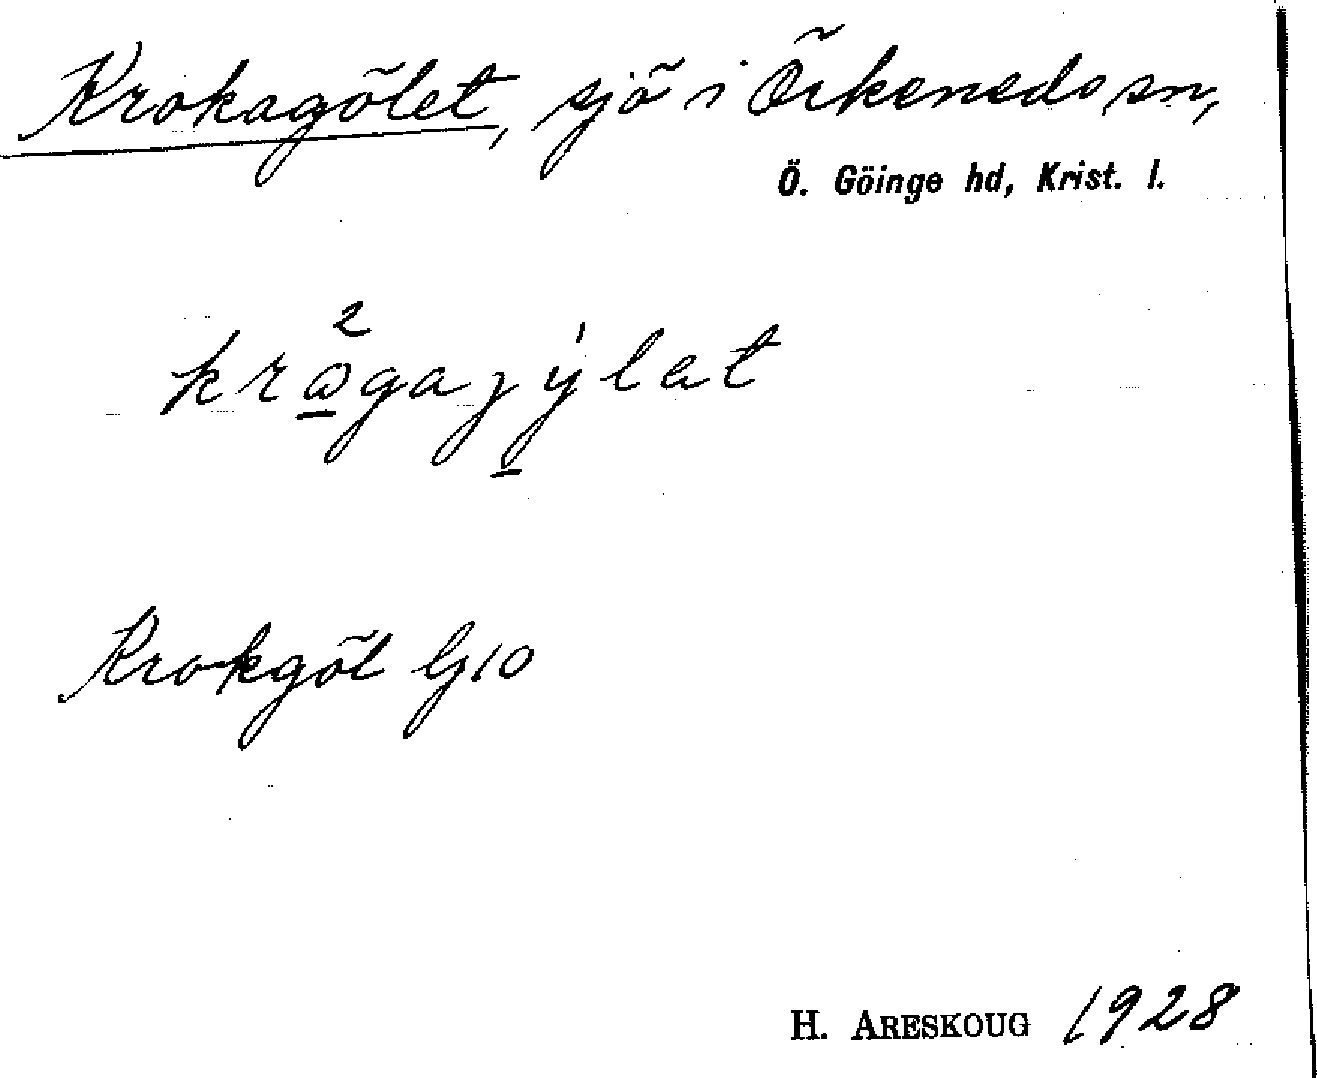 Krokagölet, sjö i Örkeneds sn,
Ö. Göinge hd, Krist. l.
Krokgöl G10
H. ARESKOUG 1928